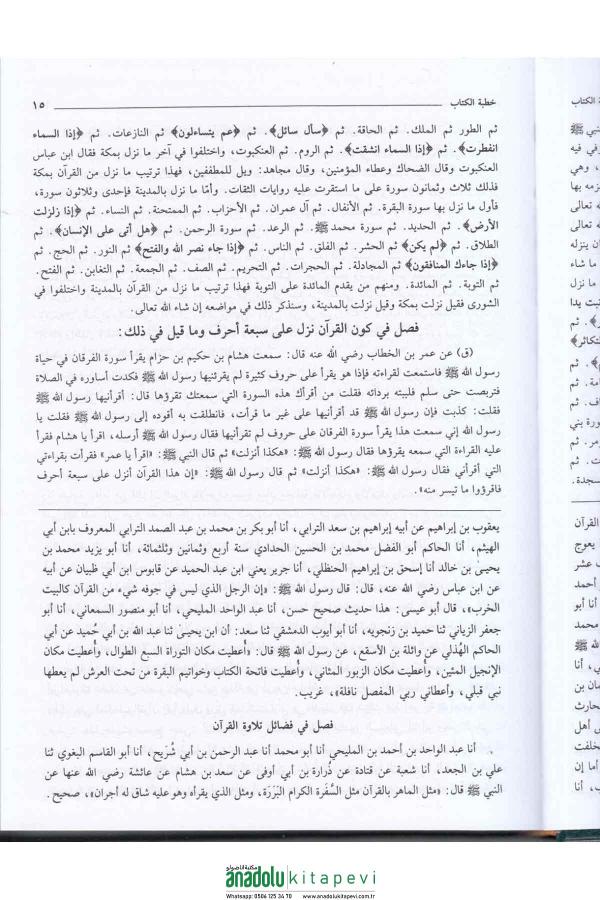 خطبة الكتاب
١٥
ثم الطور ثم الملك. ثم الحاقة. ثم ﴿سأل سائل﴾. ثم ﴿عم يتساءلون﴾ ثم النازعات. ثم ﴿إذا السماء
انفطرت﴾. ثم ﴿إذا السماء انشقت﴾. ثم الروم. ثم العنكبوت، واختلفوا في آخر ما نزل بمكة فقال ابن عباس
العنكبوت وقال الضحاك وعطاء المؤمنين، وقال مجاهد: ويل للمطففين، فهذا ترتيب ما نزل من القرآن بمكة
فذلك ثلاث وثمانون سورة على ما استقرت عليه روايات الثقات. وأمّا ما نزل بالمدينة فإحدى وثلاثون سورة،
فأول ما نزل بها سورة البقرة. ثم الأنفال. ثم آل عمران. ثم الأحزاب. ثم الممتحنة. ثم النساء. ثم ﴿إذا زلزلت
الأرض﴾. ثم الحديد. ثم سورة محمد ﷺ. ثم الرعد. ثم سورة الرحمن. ثم ﴿هل أتى على الإنسان﴾. ثم
الطلاق. ثم ﴿لم يكن﴾ ثم الحشر. ثم الفلق. ثم الناس. ثم ﴿إذا جاء نصر الله والفتح﴾ ثم النور. ثم الحج. ثم
﴿إذا جاءك المنافقون﴾ ثم المجادلة. ثم الحجرات. ثم التحريم. ثم الصف. ثم الجمعة. ثم التغابن. ثم الفتح.
ثم التوبة. ثم المائدة. ومنهم من يقدم المائدة على التوبة فهذا ترتيب ما نزل من القرآن بالمدينة واختلفوا في
الشورى فقيل نزلت بمكة وقيل نزلت بالمدينة، وسنذكر ذلك في مواضعه إن شاء الله تعالى.
فصل في كون القرآن نزل على سبعة أحرف وما قيل في ذلك:
(ق) عن عمر بن الخطاب رضي الله عنه قال: سمعت هشام بن حكيم بن حزام يقرأ سورة الفرقان في حياة
رسول الله ﷺ فاستمعت لقراءته فإذا هو يقرأ على حروف كثيرة لم يقرئنيها رسول الله ﷺ فكدت أساوره في الصلاة
فتربصت حتى سلم فلببته بردائه فقلت من أقرأك هذه السورة التي سمعتك تقرؤها قال: أقرأنيها رسول الله ﷺ
فقلت: كذبت فإن رسول الله ﷺ قد أقرأنيها على غير ما قرأت، فانطلقت به أقوده إلى رسول الله ﷺ فقلت يا
رسول الله إني سمعت هذا يقرأ سورة الفرقان على حروف لم تقرأنيها فقال رسول الله ﷺ أرسله، اقرأ يا هشام فقرأ
عليه القراءة التي سمعته يقرؤها فقال رسول الله ﷺ: «هكذا أنزلت» ثم قال النبي ﷺ: «اقرأ يا عمر» فقرأت بقراءتي
التي أقرأني فقال رسول الله ﷺ: «هكذا أنزلت» ثم قال رسول الله ﷺ: «إن هذا القرآن أنزل على سبعة أحرف
فاقرؤوا ما تيسر منه».
يعقوب بن إبراهيم عن أبيه إبراهيم بن سعد الترابي، أنا أبو بكر بن محمد بن عبد الصمد الترابي المعروف بابن أبي
الهيثم، أنا الحاكم أبو الفضل محمد بن الحسين الحدادي سنة أربع وثمانين وثلثمائة، أنا أبو يزيد محمد بن
يحيىٰ بن خالد أنا إسحق بن إبراهيم الحنظلي، أنا جرير يعني ابن عبد الحميد عن قابوس ابن أبي ظبيان عن أبيه
عن ابن عباس رضي الله عنه، قال: قال رسول الله ﷺ: «إن الرجل الذي ليس في جوفه شيء من القرآن كالبيت
الخرب»، قال أبو عيسى: هذا حديث صحيح حسن، أنا عبد الواحد المليحي، أنا أبو منصور السمعاني، أنا أبو
جعفر الزياتي ثنا حميد بن زنجويه، أنا أبو أيوب الدمشقي ثنا سعد: أن ابن يحيىٰ ثنا عبد الله بن أبي حُميد عن أبي
الحاكم الهُذلي عن واثلة بن الأسقع، عن رسول الله ﷺ قال: «أُعطيت مكان التوراة السبع الطوال، وأُعطيت مكان
الإنجيل المئين، وأُعطيت مكان الزبور المثاني، وأُعطيت فاتحة الكتاب وخواتيم البقرة من تحت العرش لم يعطها
نبي قبلي، وأعطاني ربي المفصل نافلة»، غريب.
فصل في فضائل تلاوة القرآن
أنا عبد الواحد بن أحمد بن المليحي أنا أبو محمد أنا عبد الرحمن بن أبي شُرَيح، أنا أبو القاسم البغوي ثنا
علي بن الجعد، أنا شعبة عن قتادة عن زُرارة بن أبي أوفى عن سعد بن هشام عن عائشة رضي الله عنها عن
النبي ﷺ قال: «مثل الماهر بالقرآن مثل السَّفَرة الكرام البَرَرَة، ومثل الذي يقرأه وهو عليه شاق له أجران»، صحيح.
مكتبة اناضولو
anadolu kitapevi
Whatsapp: 0506 125 34 70 www.anadolukitapevi.com.tr